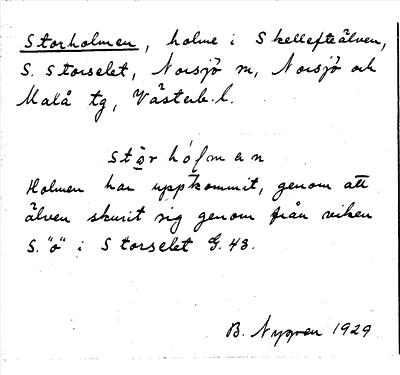 Storholmen, holme i Skellefteälven,
S. Storselet, Norsjö sn, Norsjö och
Malå tg, Västerb. l.
stǫ̀r hólman
Holmen har uppkommit, genom att
älven skurit sig genom från viken
S. "ö" i Storselet G. 43.
B. Nygren 1929